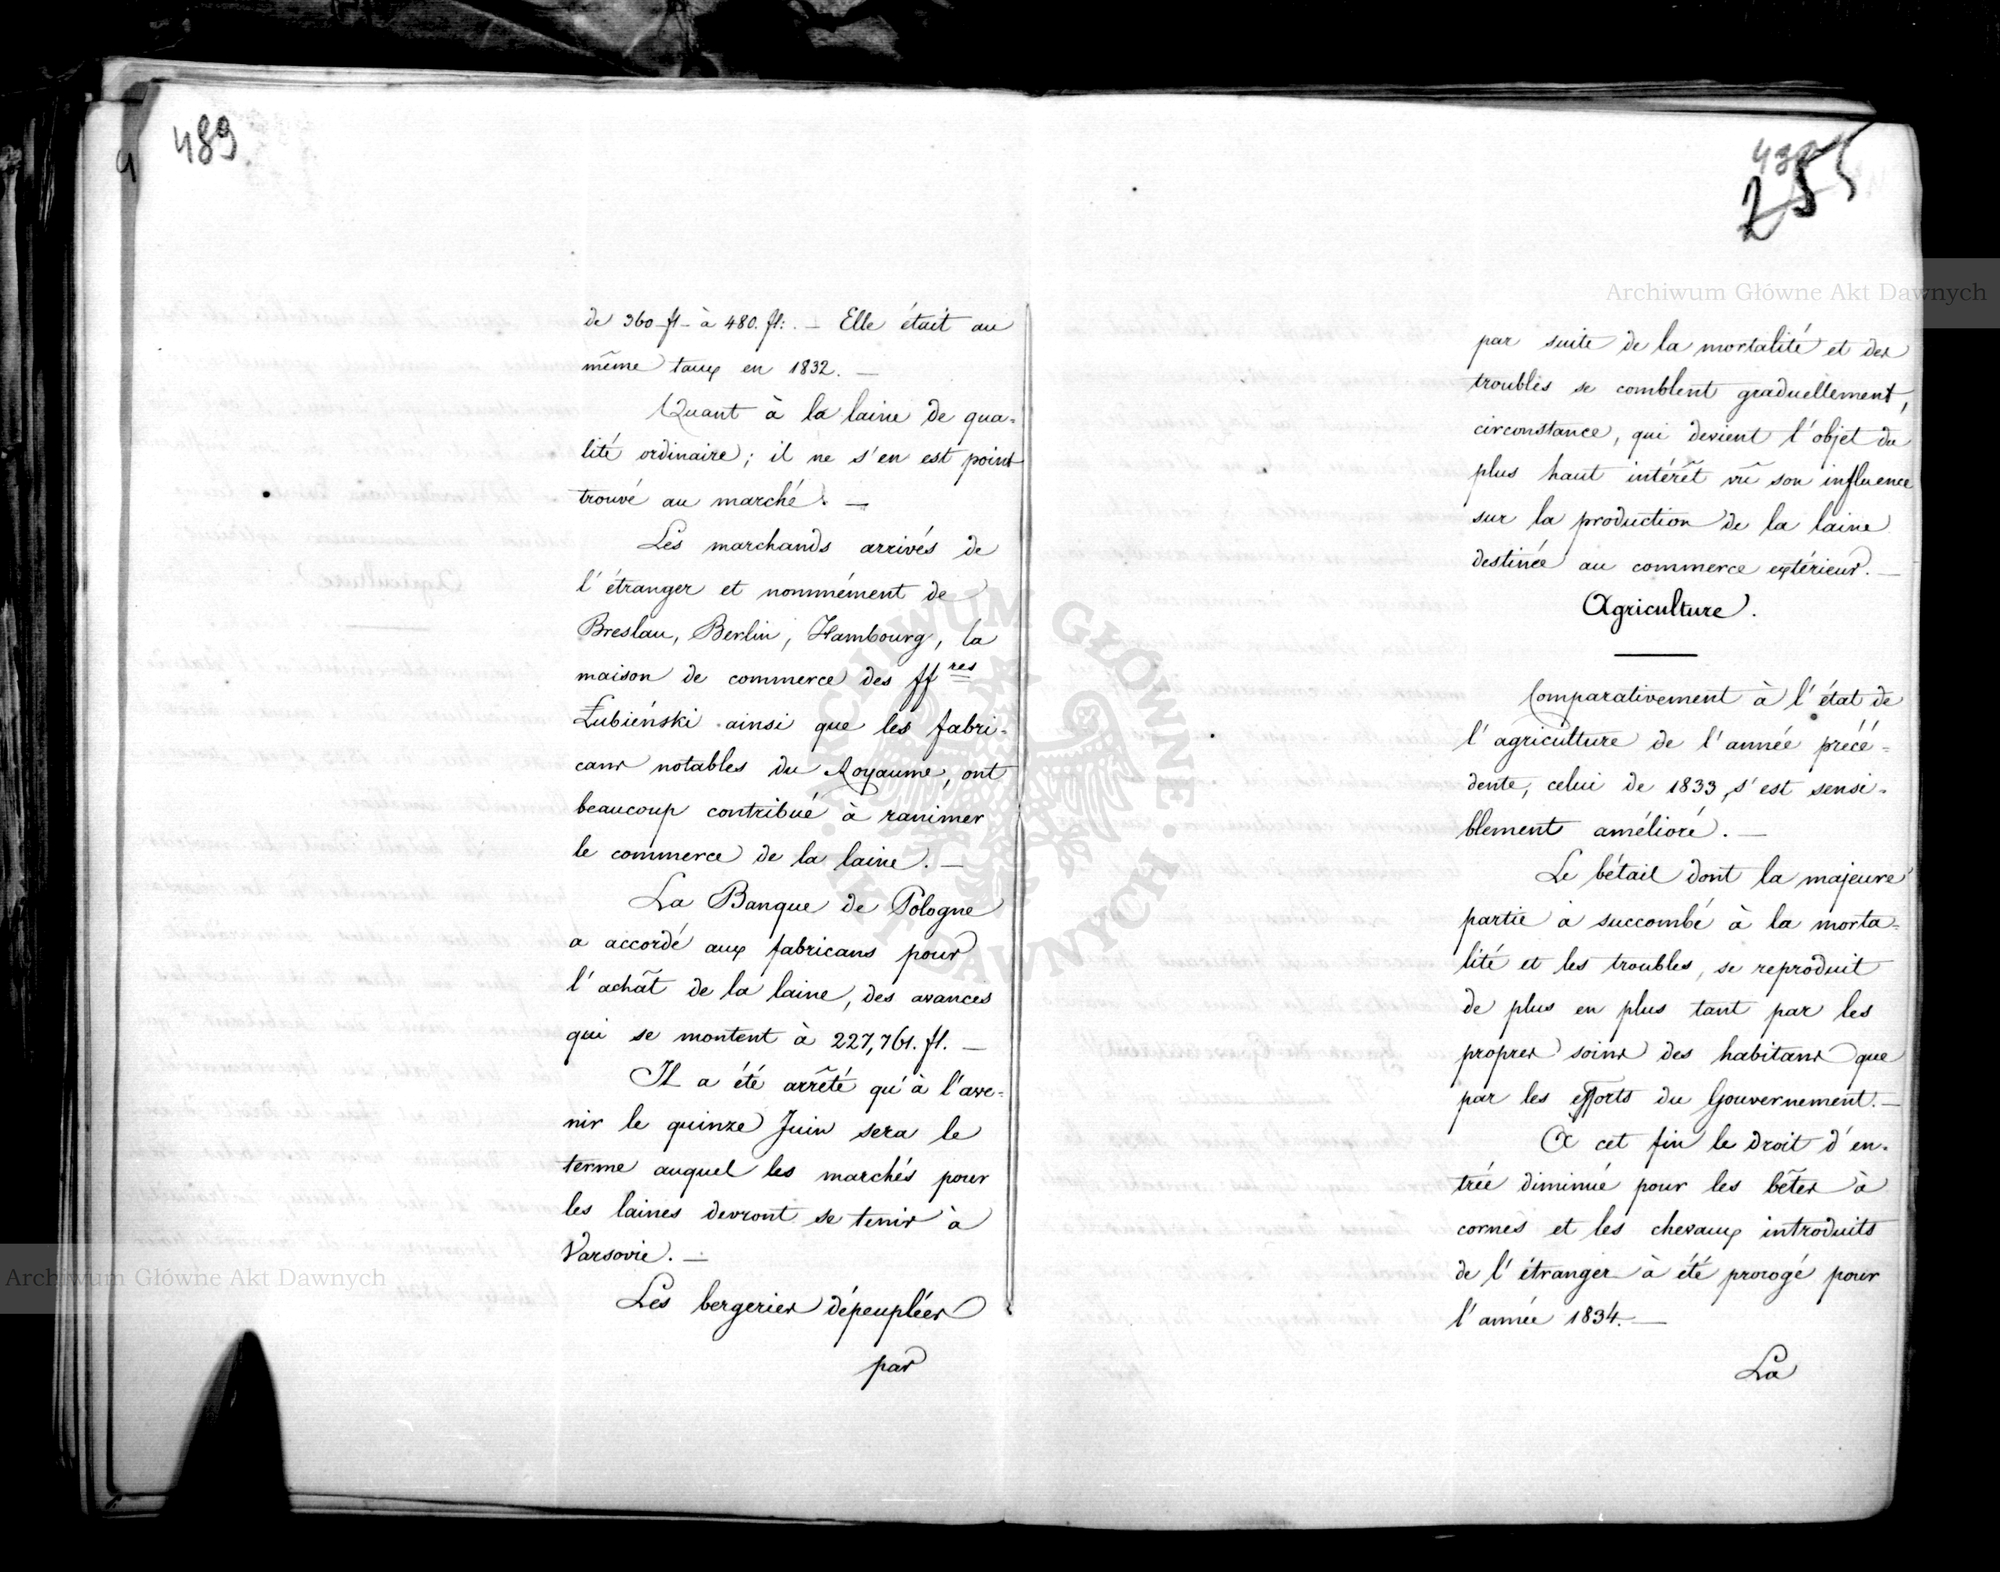 489
de 360 fl- à 480. fl:. — Elle était au
même taux en 1832. —
Quant à la laine de qua-
lité ordinaire; il ne s'en est point
trouvé au marché. —
Les marchands arrivés de
l'étranger et nommément de
Breslau, Berlin, Hambourg, la
maison de commerce des ff^res
Łubieński ainsi que les fabri-
cans notables du Royaume, ont
beaucoup contribué à ranimer
le commerce de la laine. —
La Banque de Pologne
a accordé aux fabricans pour
l'achât de la laine, des avances
qui se montent à 227,761. fl. —
Il a été arrêté qu'à l'ave-
nir le quinze Juin sera le
terme auquel les marchés pour
les laines devront se tenir à
Varsovie. —
Les bergeries dépeuplées
par
255
par suite de la mortalité et des
troubles se comblent graduellement,
circonstance, qui devient l'objet du
plus haut intérêt vû son influence
sur la production de la laine
destinée au commerce extérieur. —
Agriculture.
Comparativement à l'état de
l'agriculture de l'année précé-
dente, celui de 1833, s'est sensi-
blement amélioré. —
Le bétail dont la majeure
partie à succombé à la morta-
lité et les troubles, se reproduit
de plus en plus tant par les
propres soins des habitans que
par les efforts du Gouvernement. —
A cet fin le droit d'en-
trée diminué pour les bêtes à
cornes et les chevaux introduits
de l'étranger à été prorogé pour
l'année 1834. —
La
Archiwum Główne Akt Dawnych
Archiwum Główne Akt Dawnych
ARCHIWUM GŁÓWNE · AKT DAWNYCH ·